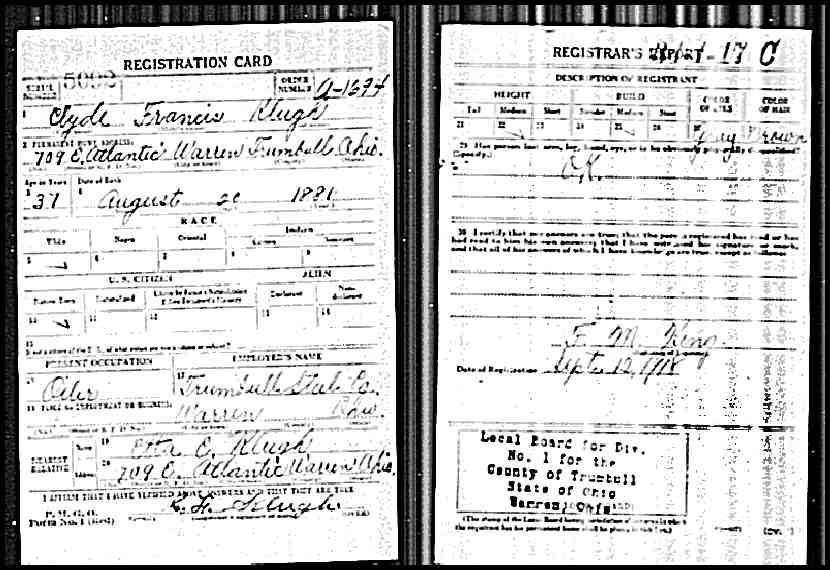 REGISTRATION CARD
SERIAL NUMBER 5092 ORDER NUMBER A-1694
1 Clyde Francis Klugh
2 PERMANENT HOME ADDRESS:
709 E. Atlantic Warren Trumbull Ohio.
Age in Years Date of Birth
37 August 20 1881
RACE
White Negro Oriental Indian
5 6 7 8 9
U. S. CITIZEN ALIEN
Native Born Naturalized Declarant Non-declarant
10 11 12 13 14
15
PRESENT OCCUPATION EMPLOYER'S NAME
Oiler Trumbull Steel Co.
18 PLACE OF EMPLOYMENT OR BUSINESS
Warren Ohio.
NEAREST RELATIVE Name 19 Etta C. Klugh
Address 20 709 E. Atlantic Warren Ohio.
I AFFIRM THAT I HAVE VERIFIED ABOVE ANSWERS AND THAT THEY ARE TRUE
P. M. G. O.
Form No. 1 (Red) C. F. Klugh
REGISTRAR'S REPORT 17 C
DESCRIPTION OF REGISTRANT
HEIGHT BUILD COLOR OF EYES COLOR OF HAIR
Tall Medium Short Slender Medium Stout
21 22 23 24 25 26 27 Gray Brown
29 Has person lost arm, leg, hand, eye, or is he obviously physically disqualified?
(Specify.)
O.K.
30 I certify that my answers are true; that the person registered has read or has
had read to him his own answers; that I have witnessed his signature or mark,
and that all of his answers of which I have knowledge are true, except as follows:
F. M. King
Date of Registration Sept. 12, 1918
Local Board for Div.
No. 1 for the
County of Trumbull
State of Ohio
Warren, Ohio
(The stamp of the Local Board having jurisdiction of the area in which
the registrant has his permanent home shall be placed in this box.)